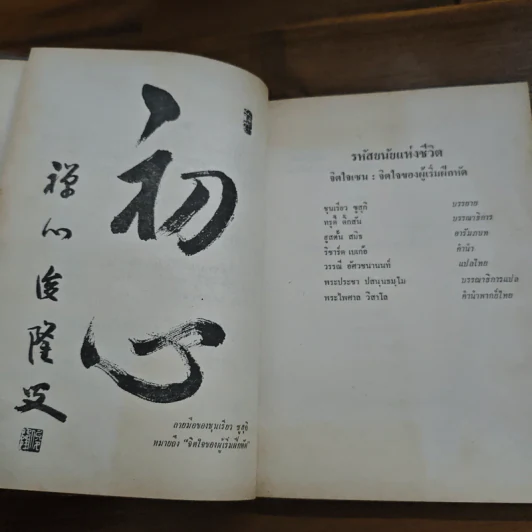 初心
禅心
俊隆
ลายมือของชุนเรียว ซูสุกิ
หมายถึง "จิตใจของผู้เริ่มฝึกหัด"
รหัสยนัยแห่งชีวิต
จิตใจเซน : จิตใจของผู้เริ่มฝึกหัด
ชุนเรียว ซูสุกิ บรรยาย
ทรูดี ดิ๊กสัน บรรณาธิการ
ฮูสตัน สมิธ อารัมภบท
ริชาร์ด เบเก้อ คำนำ
วรรณี อัศวชนานนท์ แปลไทย
พระประชา ปสนฺนธมฺโม บรรณาธิการแปล
พระไพศาล วิสาโล คำนำพากย์ไทย